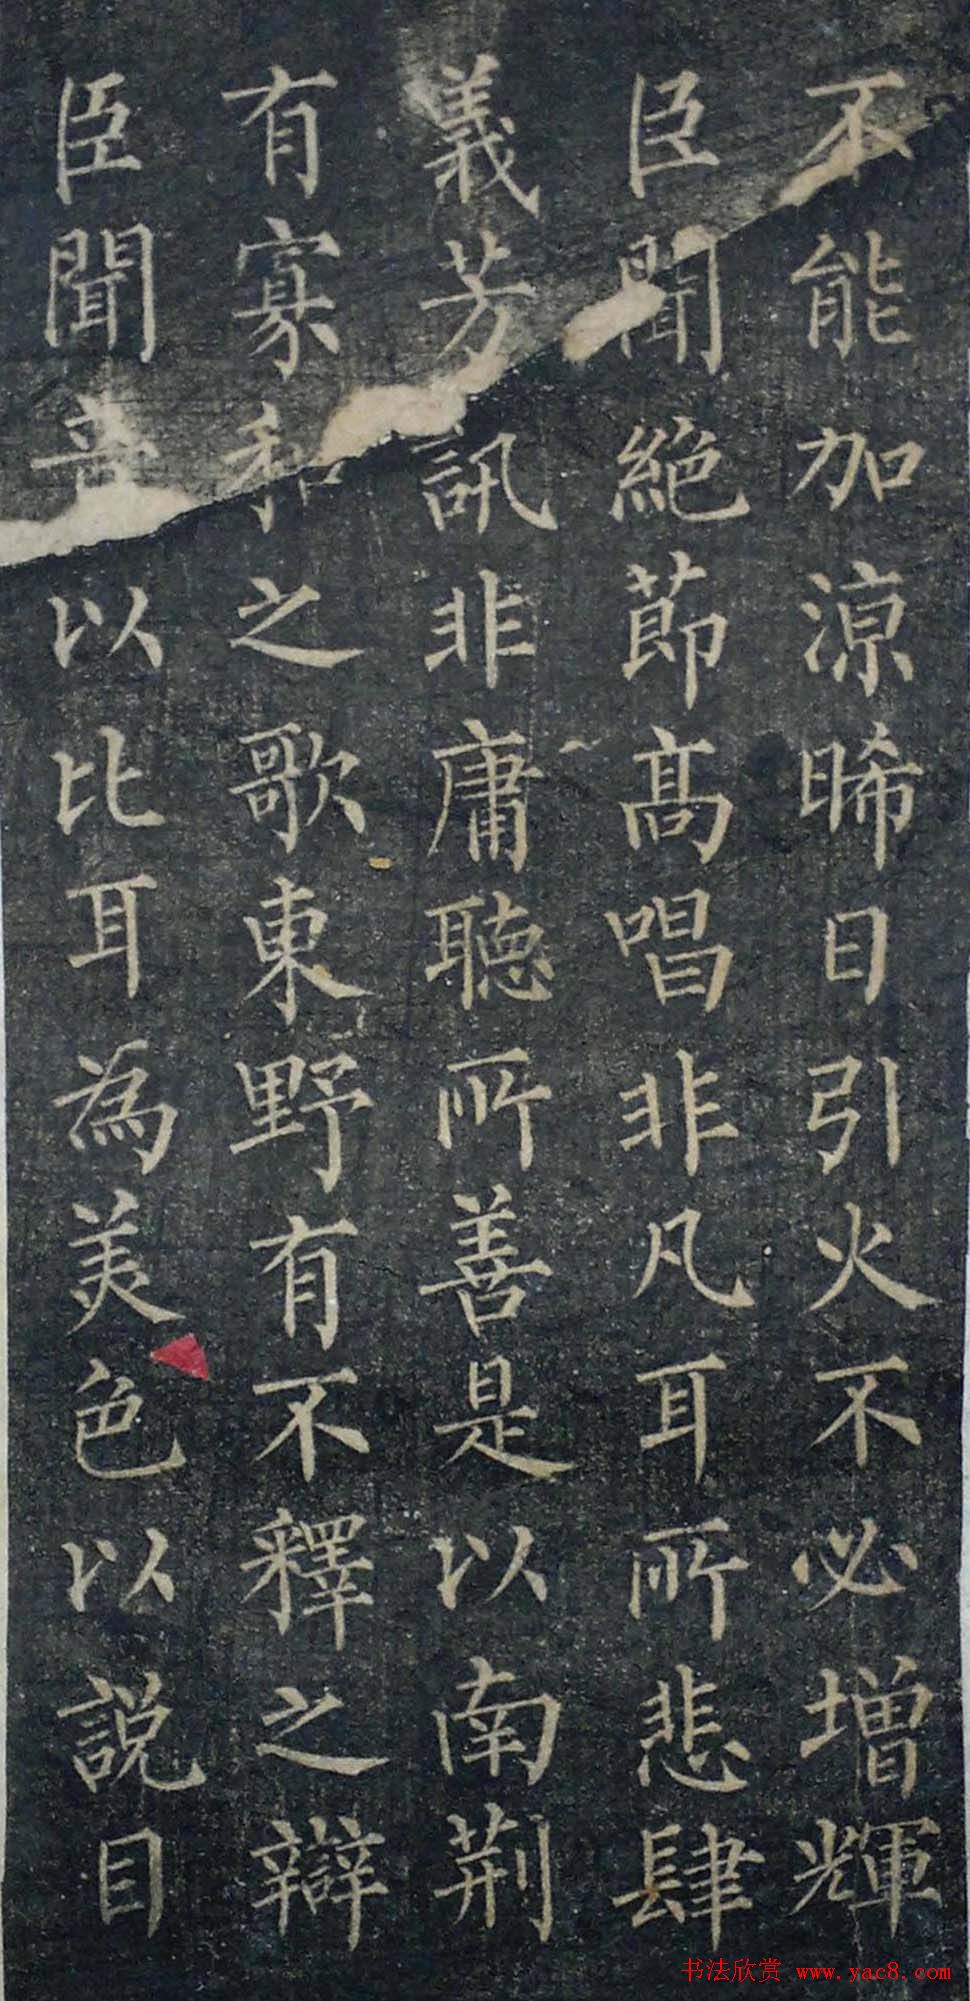 不能加涼晞日引火不必增輝
臣聞絕節髙唱非凡耳所悲肆
義芳訊非庸聽所善是以南荆
有寡和之歌東野有不釋之辯
臣聞音以比耳為美色以説目
书法欣赏 www.yac8.com